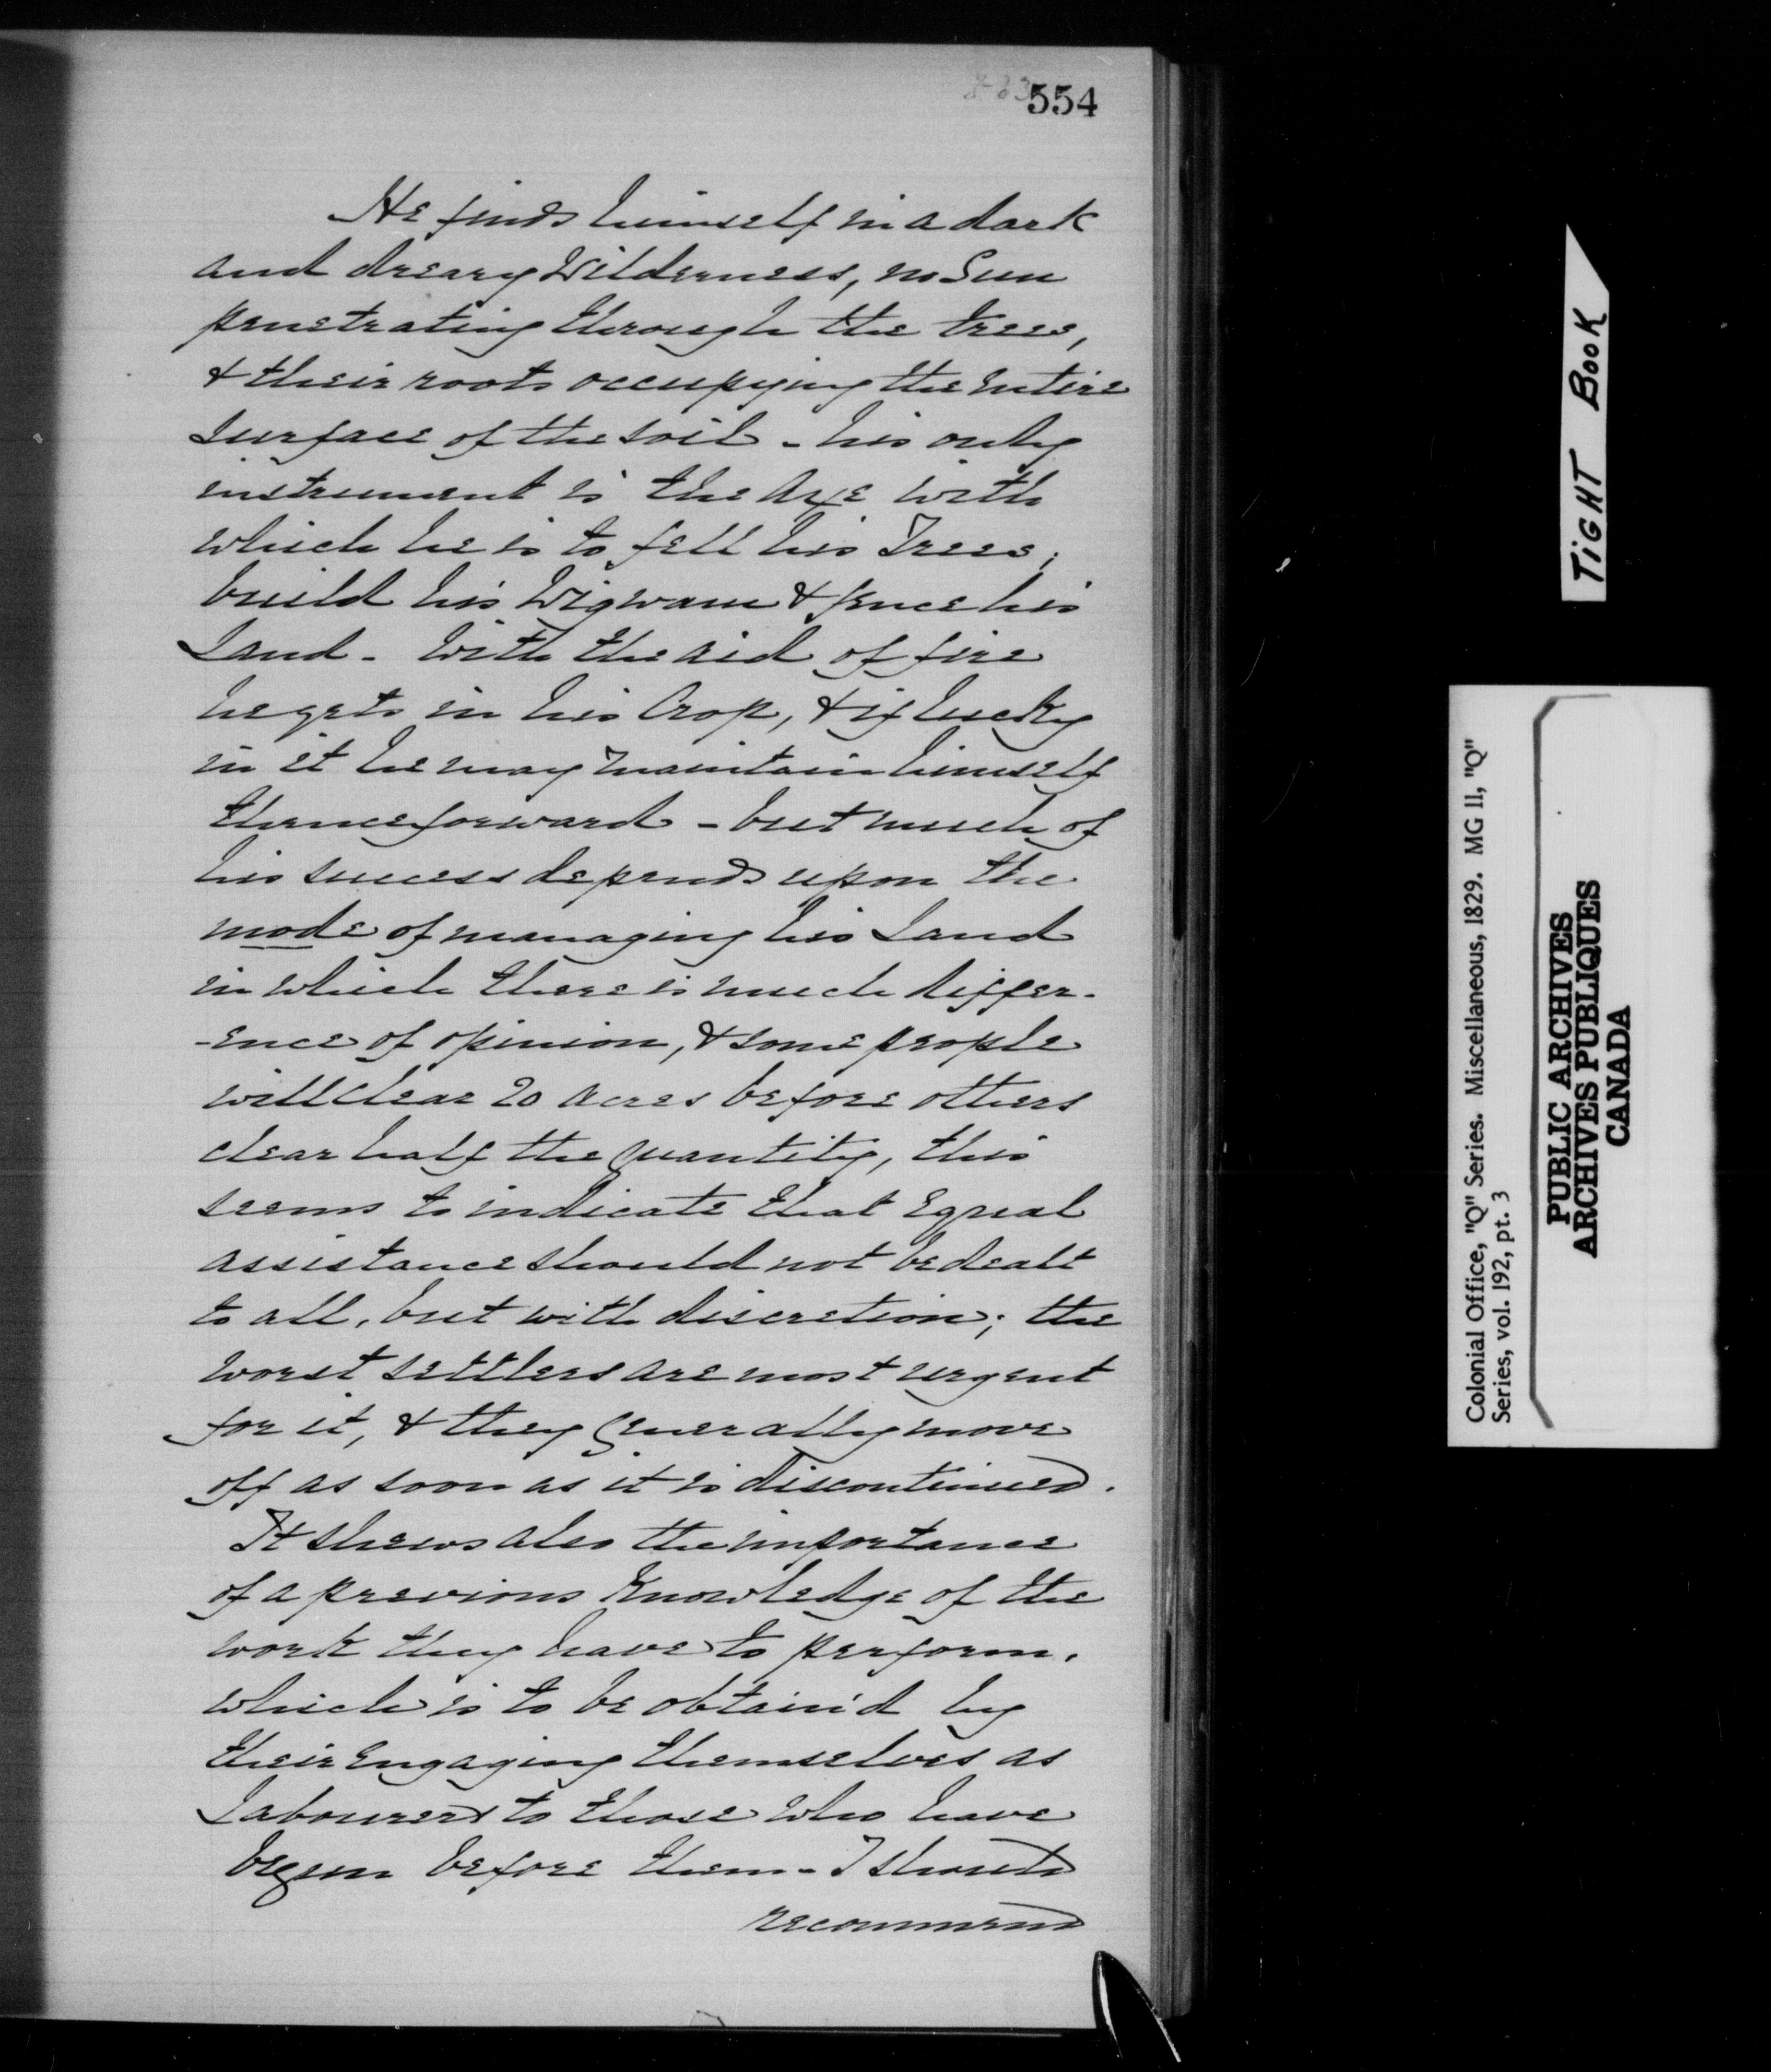 554
He finds himself in a dark
and dreary Wilderness, no Sun
penetrating through the trees,
& their roots occupying the entire
surface of the soil - his only
instrument is the Axe with
which he is to fell his Trees,
build his Wigwam & fence his
Land - With the aid of fire
he gets in his Crop, & if lucky
in it he may maintain himself
thenceforward - but much of
his success depends upon the
mode of managing his Land
in which there is much differ-
-ence of opinion, & some people
will clear 20 acres before others
clear half the Quantity, this
seems to indicate that Equal
assistance should not be dealt
to all, but with discretion; the
worst settlers are most urgent
for it, & they Generally move
off as soon as it is discontinued.
It shews also the importance
of a previous Knowledge of the
work they have to perform,
which is to be obtain'd by
their Engaging themselves as
Labourers to those who have
begun before them - I should
recommend
TIGHT BOOK
Colonial Office, "Q" Series. Miscellaneous, 1829. MG 11, "Q"
Series, vol. 192, pt. 3
PUBLIC ARCHIVES
ARCHIVES PUBLIQUES
CANADA